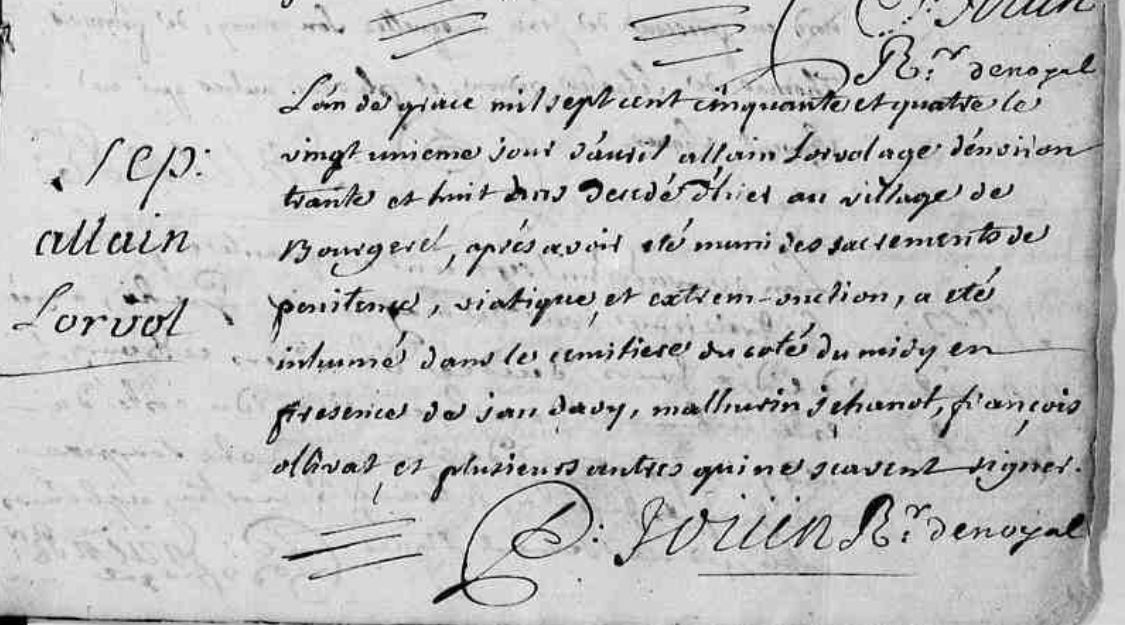 P: Jouin
R:r denoyal
Sep:
allain
Lorvol
L'an de grace mil sept cent cinquante et quatre le
vingt unieme jour d'auril allain Lorvol agé d'énviron
trante et huit Ans decédé d'hier au village de
Bourgerel, aprés avoir eté muni des sacrements de
penitence, viatique, et extrem-onction, a eté
inhumé dans le cemitiere du coté du midy en
presence de jan davy, mathurin jehanot, françois
ollivat, et plusieurs autres qui ne scavent signer.
P: Jouin R:r denoyal